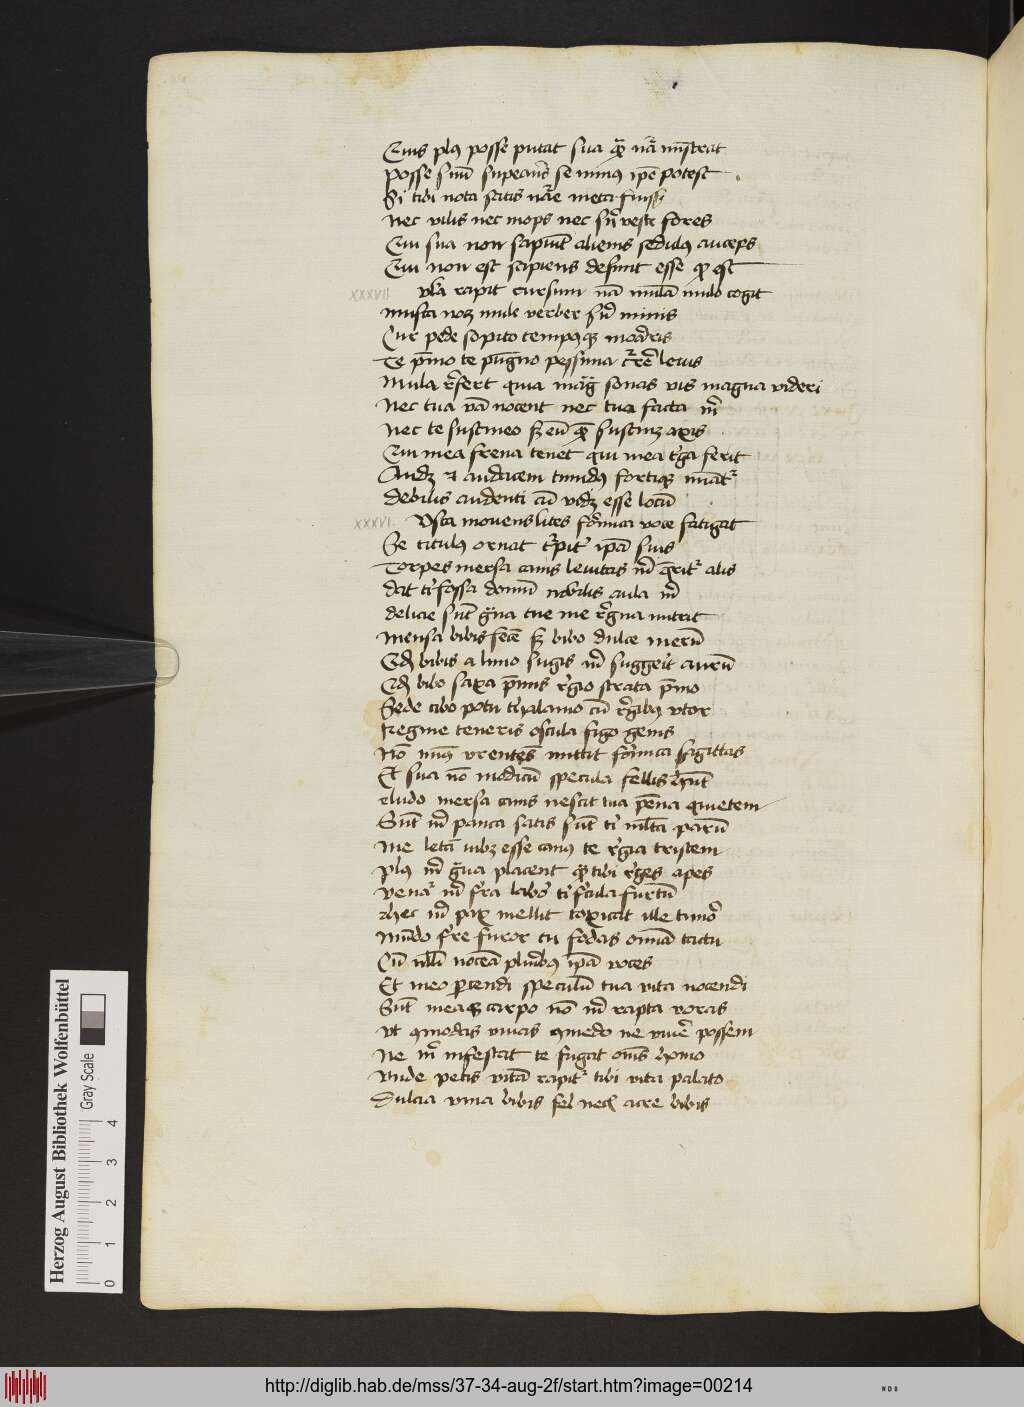 Quis plus posse putat sua quam natura ministrat
Posse suum superans se minus ipse potest
Si tibi nota satis nature meta fuisset
Nec vilis nec inops nec sine veste fores
Qui sua non sapiunt alienis sedulus auceps
Qui non est sapiens desinit esse quod est
XXXVII vla rapit cursum nam mulam mulo cogit
Musca nocens mule verbere siue minis
Cur pede sopito tempusque
Te premo te pungno pessima curre leuis
Mula refert quia magna sonas vis magna videri
Nec tua verba nocent nec tua facta michi
Nec te sustineo sed eum quem sustinet axis
Qui mea frena tenet qui mea terga ferit
Audet et audacem timidus fortemque minatur
debilis audenti cum videt esse locum
XXXVI Vsca mouens lites formica voce fatigat
Se titulis ornat turpiter ipsa suis
Torpes mersa cauis leuitas michi queritur alis
dat tibi fossa domum nobilis aula michi
delicie sunt grana tue me regina nutrit
Mensa bibis fece sed bibo dulce merum
Quod bibis a limo sugis michi suggerit aurum
Quod bibo saxa premis regio strata premo
Sede cibo potu thalamo cum regibus vtor
Regine teneris oscula figo genis
Non minus vrentes mittit formica sagittas
Et sua non modicum specula fellis habent
rludo mersa cauis nescit tua pena quietem
Sunt michi pauca satis sunt tibi multa parum
Me letam iubet esse cauus te regia tristem
Plus michi grana placent quam tibi reges apes
venatur michi farra labor tibi fercula furtum
rhec michi pax mellit toxicat ille timor
Mundo farre furor tu fedas omnia tactu
Cum nulli noceam pluribus ipsa noces
Et meo pretendi speculum tua vita nocendi
Sunt mea que carpo non michi rapta voras
vt comedas viuas comedo ne viuere possem
Ne michi infestat te fugat omnis homo
Vnde petis vitam rapitur tibi vita palato
Dulcia vina bibis fel nech acre bibis
Herzog August Bibliothek Wolfenbüttel
Gray Scale
0 1 2 3 4
http://diglib.hab.de/mss/37-34-aug-2f/start.htm?image=00214